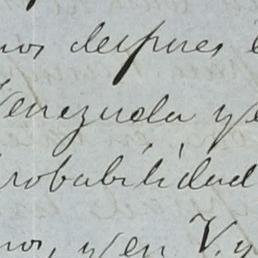 nos despues
Venezuela y
probabilidad
nos, y en V. y